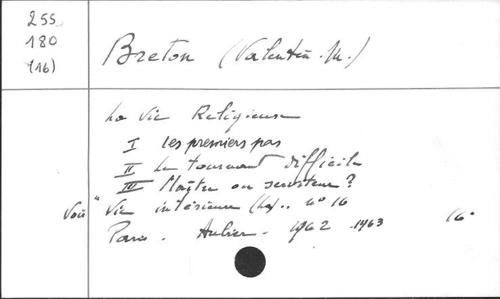 255
180
(16)
Breton (Valentin-M.)
La Vie Religieuse
I Les premiers pas
II Le tournant difficile
III Maître ou serviteur?
Voir "Vie intérieure (La).. n° 16
Paris. Aubier. 1962 .1963 16°